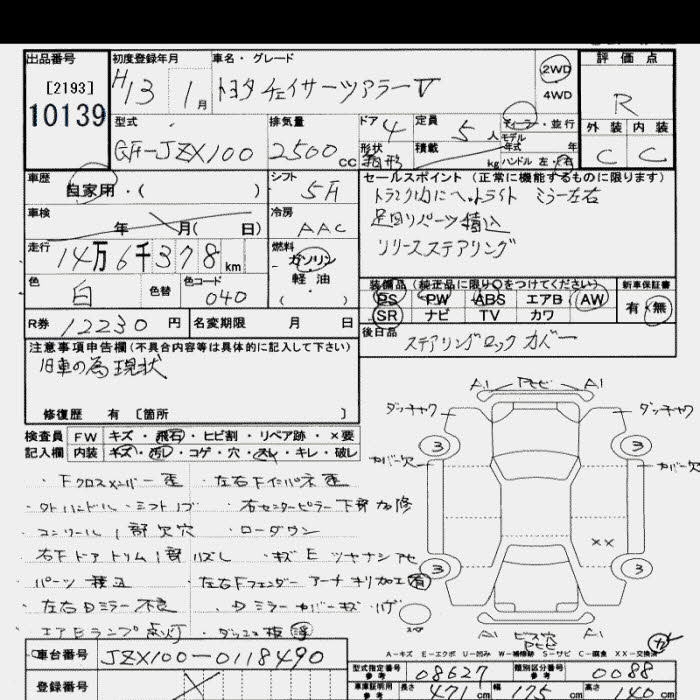 出品番号
[2193]
10139
初度登録年月
H13 1月
車名・グレード
トヨタ チェイサーツアラーV
2WD
4WD
評価点
R
外装 内装
C C
型式
GH-JZX100
排気量
2500cc
ドア 4
形状 箱形
定員 5人
積載 kg
ディーラー・並行
モデル
年式 年
ハンドル 左・右
車歴
自家用・( )
シフト
5F
車検
年 月( 日)
冷房
AAC
走行
14万6千378km
燃料
ガソリン
軽油
( )
色
白
色替
色コード
040
R券 12230円
名変期限 月 日
セールスポイント(正常に機能するものに限ります)
トランク内にヘッドライト ミラー左右
足回りパーツ積込
リリースステアリング
装備品(純正品に限り○をつけてください)
PS PW ABS エアB AW
SR ナビ TV カワ
新車保証書
有・無
後日品
ステアリングロック カバー
注意事項申告欄(不具合内容等は具体的に記入して下さい)
旧車の為現状
修復歴 有 [箇所 ]
検査員 FW キズ・飛石・ヒビ割・リペア跡・×要
記入欄 内装 キズ・汚レ・コゲ・穴・スレ・キレ・破レ
・Fクロスメンバー歪 ・左右Fインパネ歪
・外ハンドル・シフトノブ ・右センターピラー下部加修
・コンソール1部欠穴 ・ローダウン
・右Fドアトリム1部ハズレ ・キズEツヤナシアセ
・パーツ積込 ・左右Fフェンダーアーチキリ加工有
・左右Dミラー不良 ・Dミラーカバーキズハゲ
・エアBランプ点灯
A1 A1
ダッチャク ダッチャク
3 3
カバー欠 カバー欠
××
3 3
スペア
A1 A1
A-キズ E-エクボ U-凹み W-補修跡 S-サビ C-腐食 XX-交換済
車台番号 JZX100-0118490
登録番号
型式指定番号 参考 08627
類別区分番号 参考 0088
車庫証明用 参考 長さ 471cm 幅 175cm 高さ 140cm